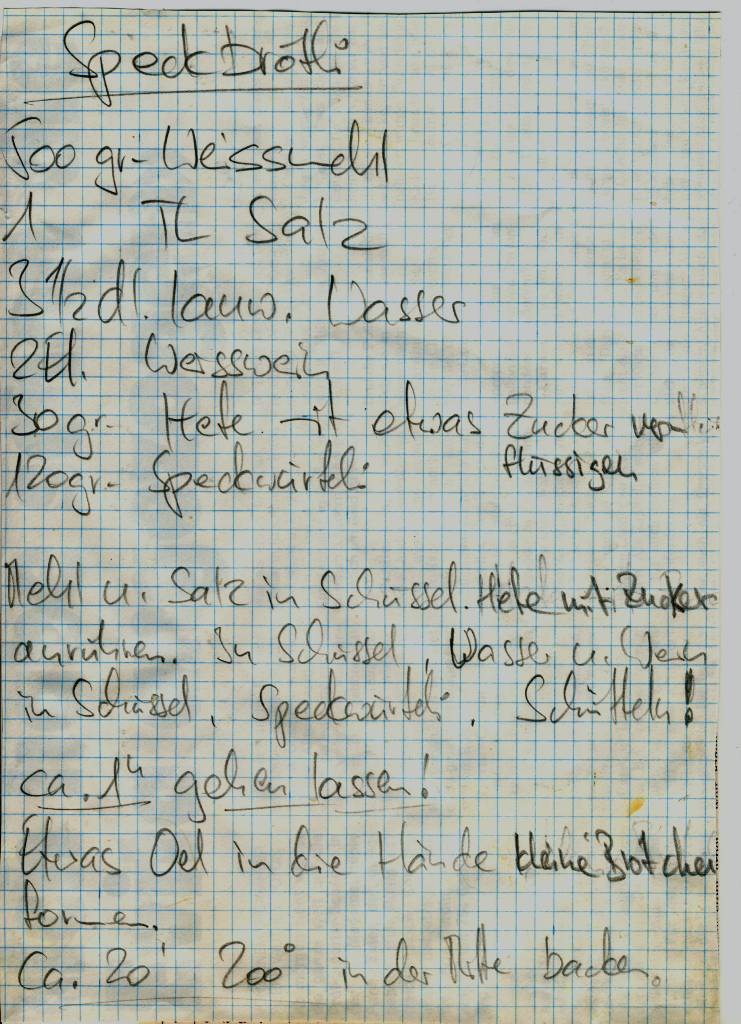 Speckbrötli
500 gr. Weissmehl
1 TL Salz
3 1/2 dl. lauw. Wasser
2 El. Weisswein
30 gr. Hefe mit etwas Zucker ver
flüssigen
120 gr. Speckwürfeli
Mehl u. Salz in Schüssel. Hefe mit Zucker
anrühren. In Schüssel, Wasser u. Wein
in Schüssel, Speckwürfeli, Schütteln!
ca. 1h gehen lassen!
Etwas Oel in die Hände kleine Brötchen
formen.
Ca. 20' 200° in der Mitte backen.